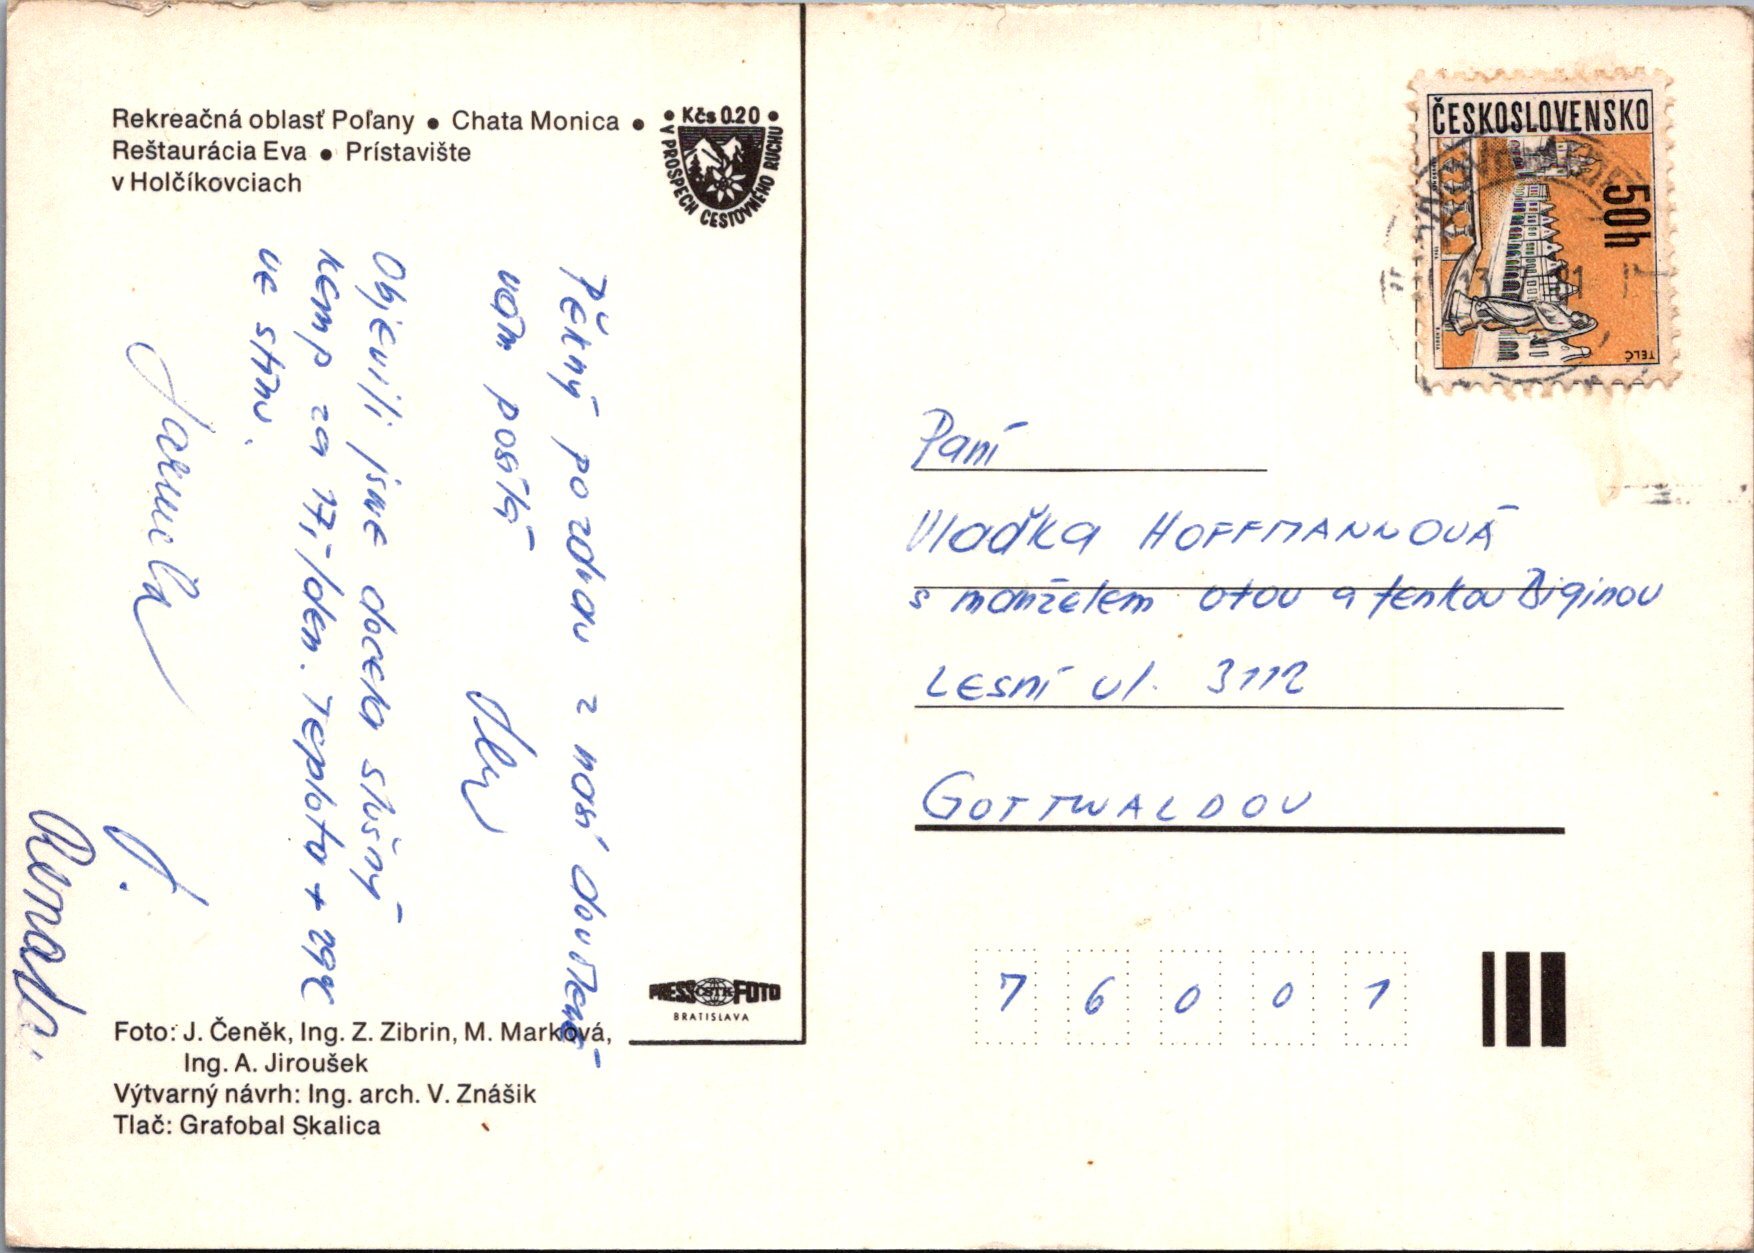 Rekreačná oblasť Poľany • Chata Monica •
Reštaurácia Eva • Prístavište
v Holčíkovciach
• Kčs 0.20 •
V PROSPECH CESTOVNÉHO RUCHU
Pěkný pozdrav z naší dovolené
vám posílá
Objevili jsme docela slušný
kemp za 17,-/den. Teplota + 29°C
ve stínu.
Jarmila
J.
Renata
PRESS ČSTK FOTO
BRATISLAVA
Foto: J. Čeněk, Ing. Z. Zibrin, M. Marková,
Ing. A. Jiroušek
Výtvarný návrh: Ing. arch. V. Znášik
Tlač: Grafobal Skalica
ČESKOSLOVENSKO
50h
TELČ
Paní
Vlaďka HOFFMANNOVÁ
s manželem Otou a
LESNÍ ul. 3112
GOTTWALDOV
76001